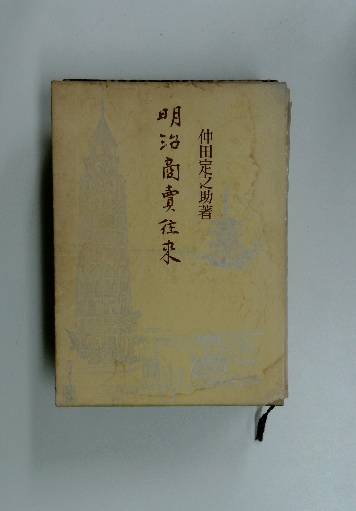 明治商賣往来
仲田定之助著